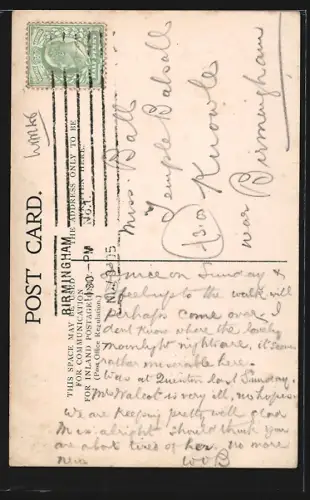 POST CARD.
THIS SPACE MAY BE USED
FOR COMMUNICATION
FOR INLAND POSTAGE
(Post Office Regulation.)
THE ADDRESS ONLY TO BE
BIRMINGHAM
PM
No 1
Miss Ball
Temple Balsall
Knowle
near Birmingham
on Sunday &
feeling to the walk will
perhaps come over I
dont know where the lovely
moonlight nights are. it seems
rather miserable here.
I was at Quinton last Sunday.
Mrs Walcot is very ill, no hopes.
We are keeping pretty well glad
M is alright should think you
are about tired of her. no more
WB